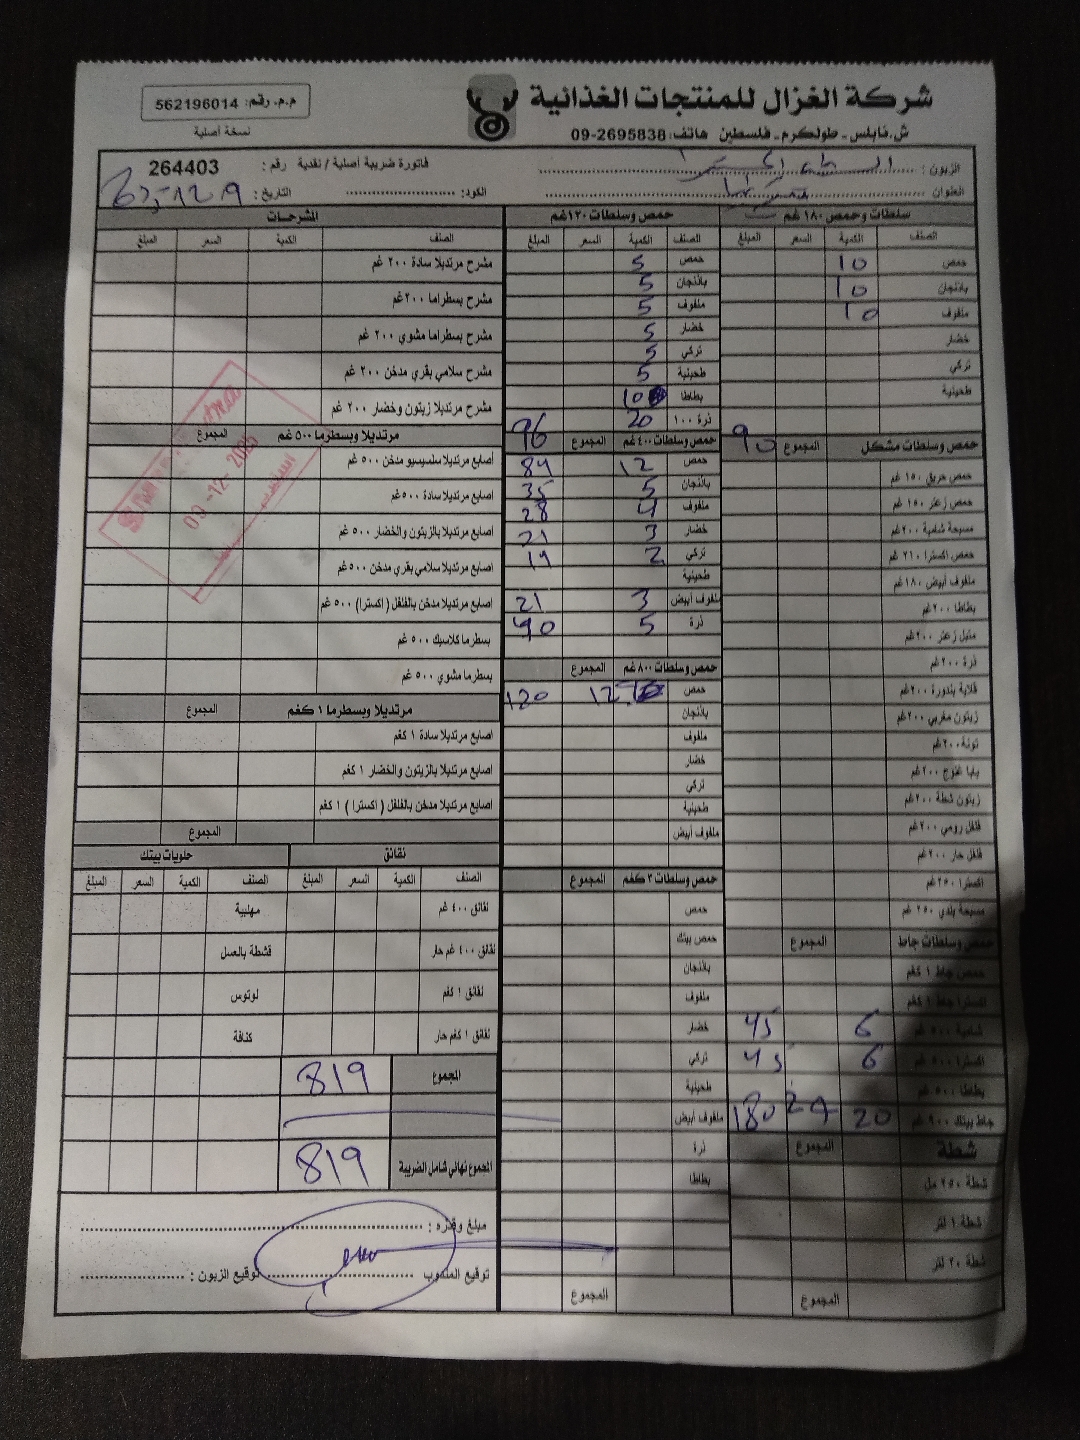 شركة الغزال للمنتجات الغذائية
ش.نابلس - طولكرم - فلسطين هاتف: 09-2695838
م.م. رقم: 562196014
نسخة أصلية
الزبون :
فاتورة ضريبة أصلية / نقدية رقم : 264403
العنوان :
الكود:
التاريخ:
سلطات وحمص ١٨٠ غم
الصنف الكمية السعر المبلغ
حمص 10
باذنجان 10
ملفوف 10
خضار
تركي
طحينية
حمص وسلطات مشكل المجموع 90
حمص حريق ١٥٠ غم
حمص زعتر ١٥٠ غم
مسبحة شامية ٢٠٠ غم
حمص اكسترا ٢١٠ غم
ملفوف ابيض ١٨٠ غم
بطاطا ٢٠٠ غم
متبل زعتر ٢٠٠ غم
ذرة ٢٠٠ غم
قلاية بندورة ٢٠٠ غم
زيتون مغربي ٢٠٠ غم
تونة ٢٠٠ غم
بابا غنوج ٢٠٠ غم
زيتون شطة ٢٠٠ غم
فلفل رومي ٢٠٠ غم
فلفل حار ٢٠٠ غم
اكسترا ٢٥٠ غم
مسبحة بلدي ٢٥٠ غم
حمص وسلطات جاط المجموع
حمص جاط ١ كغم
اكسترا جاط ١ كغم
شامية ٥٠٠ غم 6 45
اكسترا ٥٠٠ غم 6 45
بطاطا ٥٠٠ غم
جاط بيتك ٩٠٠ غم 20 180
شطة المجموع
شطة ٢٥٠ مل
شطة ١ لتر
شطة ٢٠ لتر
المجموع
حمص وسلطات ١٢٠ غم
الصنف الكمية السعر المبلغ
حمص 5
باذنجان 5
ملفوف 5
خضار 5
تركي 5
طحينية 5
بطاطا 10
ذرة ١٠٠ 20 96
حمص وسلطات ٤٠٠ غم المجموع
حمص 12 84
باذنجان 5 35
ملفوف 4 28
خضار 3 21
تركي 2 14
طحينية
ملفوف أبيض 3 21
ذرة 5 40
حمص وسلطات ٨٠٠ غم المجموع
حمص 12 120
باذنجان
ملفوف
خضار
تركي
طحينية
ملفوف أبيض
حمص وسلطات ٣ كغم المجموع
حمص
حمص بيتك
باذنجان
ملفوف
خضار
تركي
طحينية
ملفوف أبيض
ذرة
بطاطا
المجموع
المشرحات
الصنف الكمية السعر المبلغ
مشرح مرتديلا سادة ٢٠٠ غم
مشرح بسطراما ٢٠٠ غم
مشرح بسطراما مشوي ٢٠٠ غم
مشرح سلامي بقري مدخن ٢٠٠ غم
مشرح مرتديلا زيتون وخضار ٢٠٠ غم
مرتديلا وبسطرما ٥٠٠ غم المجموع
أصابع مرتديلا سلسيسيو مدخن ٥٠٠ غم
اصابع مرتديلا سادة ٥٠٠ غم
اصابع مرتديلا بالزيتون والخضار ٥٠٠ غم
اصابع مرتديلا سلامي بقري مدخن ٥٠٠ غم
اصابع مرتديلا مدخن بالفلفل (اكسترا) ٥٠٠ غم
بسطرما كلاسيك ٥٠٠ غم
بسطرما مشوي ٥٠٠ غم
مرتديلا وبسطرما ١ كغم المجموع
اصابع مرتديلا سادة ١ كغم
اصابع مرتديلا بالزيتون والخضار ١ كغم
اصابع مرتديلا مدخن بالفلفل (اكسترا) ١ كغم
المجموع
09-12-2025
نقانق
الصنف الكمية السعر المبلغ
نقانق ٤٠٠ غم
نقانق ٤٠٠ غم حار
نقانق ١ كغم
نقانق ١ كغم حار
حلويات بيتك
الصنف الكمية السعر المبلغ
مهلبية
قشطة بالعسل
لوتوس
كنافة
المجموع 819
المجموع نهائي شامل الضريبة 819
مبلغ وقدره :
توقيع المندوب
توقيع الزبون :